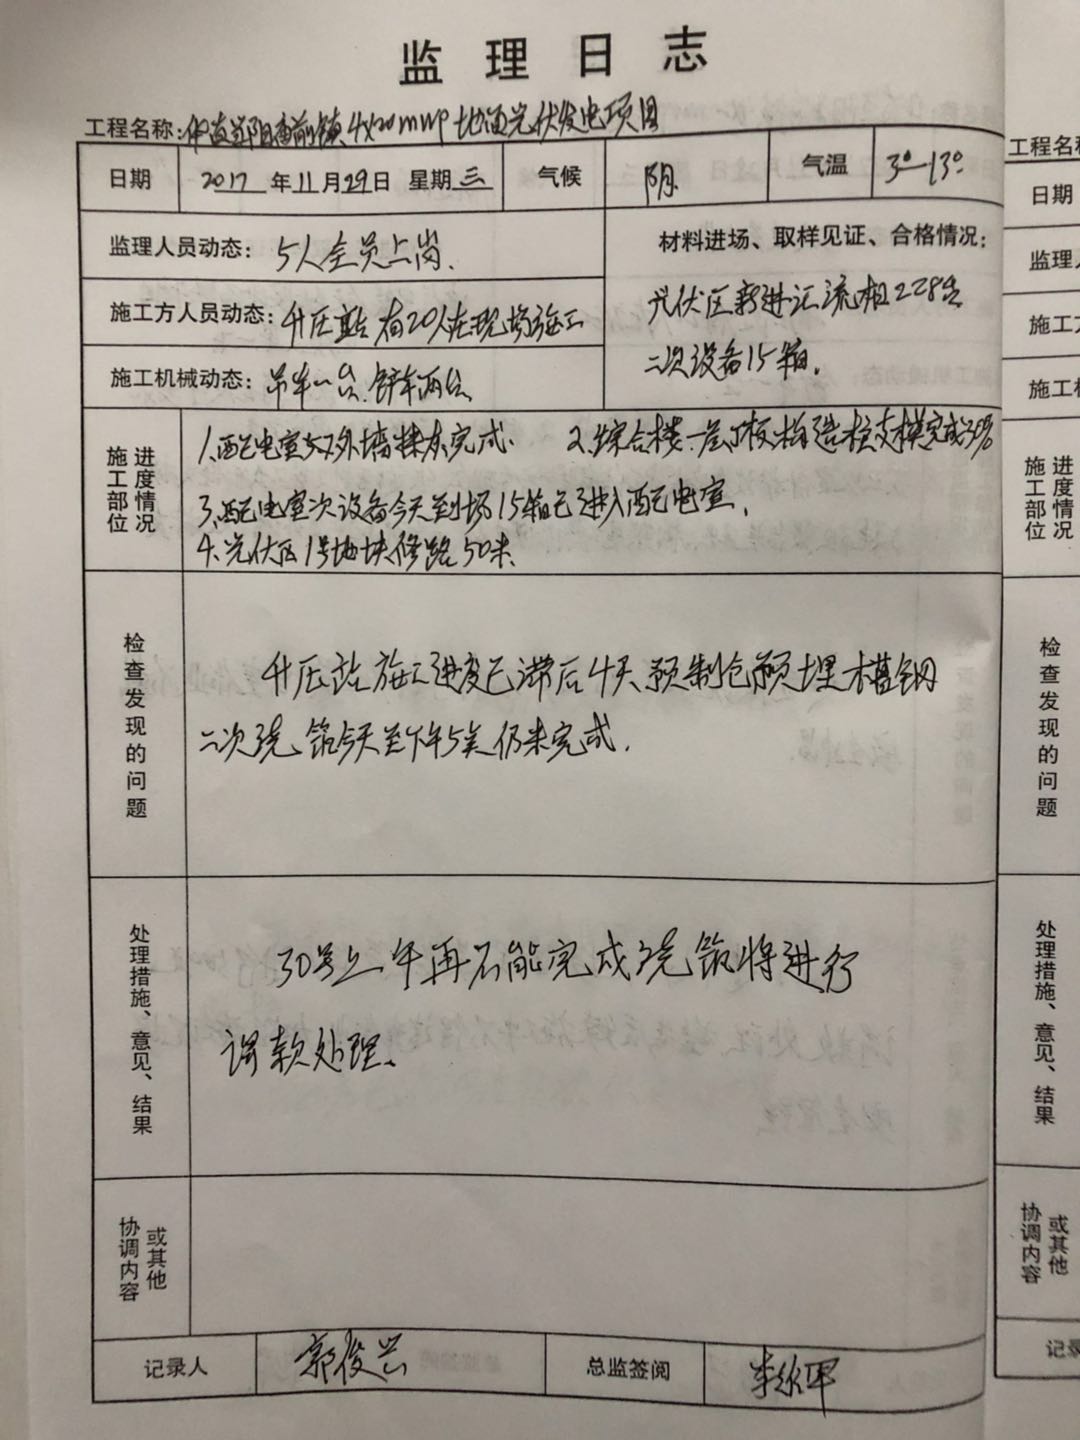 监理日志
工程名称: 4X20MWP地面光伏发电项目
日期 2017年11月29日 星期三 气候 阴 气温 3°-13°
监理人员动态: 5人全员上岗.
材料进场、取样见证、合格情况:
光伏区新进汇流柜228台
二次设备15箱.
施工方人员动态: 升压站有20人在现场施工
施工机械动态: 吊车一台.铲车两台
施工部位
进度情况
1.配电室 外墙抹灰完成. 2.综合楼一层 构造柱支模完成
3.配电室次设备今天到场15箱已进入配电室.
4.光伏区1号地块修路50米.
检查发现的问题
升压站施工进度已滞后4天预制仓预埋槽钢
二次浇筑今天至下午5点仍未完成.
处理措施、意见、结果
30号上午再不能完成浇筑将进行
罚款处理.
协调内容
或其他
记录人 郭俊
总监签阅 李
工程名称
日期
监理人
施工方
施工机
施工部位
进度情况
检查发现的问题
处理措施、意见、结果
协调内容
或其他
记录